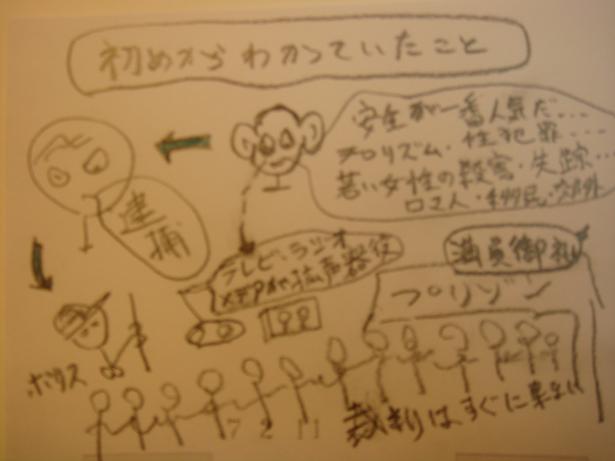 初めからわかっていたこと
安全が一番人気だ...
テロリズム・性犯罪...
若い女性の殺害・失踪...
ロマ人・移民・郊外
逮
捕
テレビ・ラジオ
メディアが拡声器役
満員御礼
プリゾン
ポリス
7 2 11
裁判はすぐに